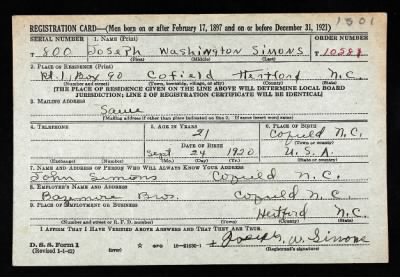 1801
REGISTRATION CARD—(Men born on or after February 17, 1897 and on or before December 31, 1921)
SERIAL NUMBER 1. NAME (Print) ORDER NUMBER
T 800 Joseph Washington Simons 10588
(First) (Middle) (Last)
2. PLACE OF RESIDENCE (Print)
Rt. 1, Box 90 Cofield Hertford N.C.
(Number and street) (Town, township, village, or city) (County) (State)
[THE PLACE OF RESIDENCE GIVEN ON THE LINE ABOVE WILL DETERMINE LOCAL BOARD
JURISDICTION; LINE 2 OF REGISTRATION CERTIFICATE WILL BE IDENTICAL]
3. MAILING ADDRESS
Same
[Mailing address if other than place indicated on line 2. If same insert word same]
4. TELEPHONE 5. AGE IN YEARS 6. PLACE OF BIRTH
21 Cofield N.C.
DATE OF BIRTH (Town or county)
Sept 24 1920 U.S.A.
(Exchange) (Number) (Mo.) (Day) (Yr.) (State or country)
7. NAME AND ADDRESS OF PERSON WHO WILL ALWAYS KNOW YOUR ADDRESS
John Simons Cofield N.C.
8. EMPLOYER'S NAME AND ADDRESS
Bazemore Bros. Cofield N.C.
9. PLACE OF EMPLOYMENT OR BUSINESS
Hertford N.C.
(Number and street or R. F. D. number) (Town) (County) (State)
I AFFIRM THAT I HAVE VERIFIED ABOVE ANSWERS AND THAT THEY ARE TRUE.
D. S. S. Form 1 GPO 16—21630-1 Joseph W. Simons
(Revised 1-1-42) (Registrant's signature)